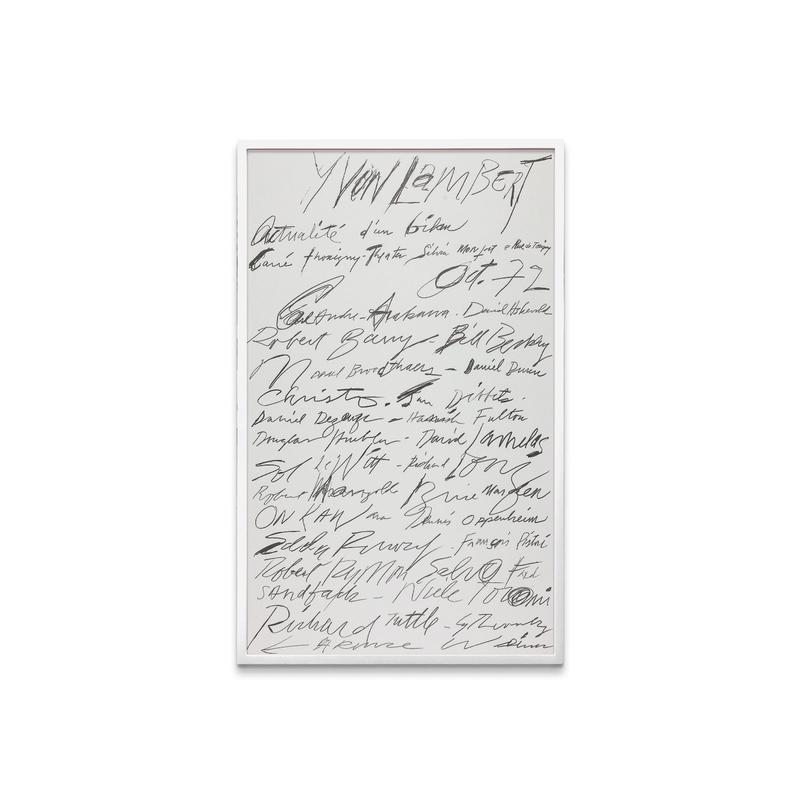 YVON LAMBERT
Actualité d'un bilan
Carré Thorigny - Theatre Silvia Monfort
Oct. 72
Carl Andre - Arakawa - David
Robert Barry - Bill Beckley
Marcel Broodthaers - Daniel Buren
Christo - Jan Dibbets -
Daniel Dezeuze - Hamish Fulton
Douglas Huebler - David Lamelas
Sol LeWitt - Richard Long
Robert Mangold Brice Marden
ON KAWara Dennis Oppenheim
Edda Renouf - François Ristori
Robert Ryman Salvo Fred
SAndback - Niele Toroni
Richard Tuttle - Cy Twombly
LAwrence Weiner